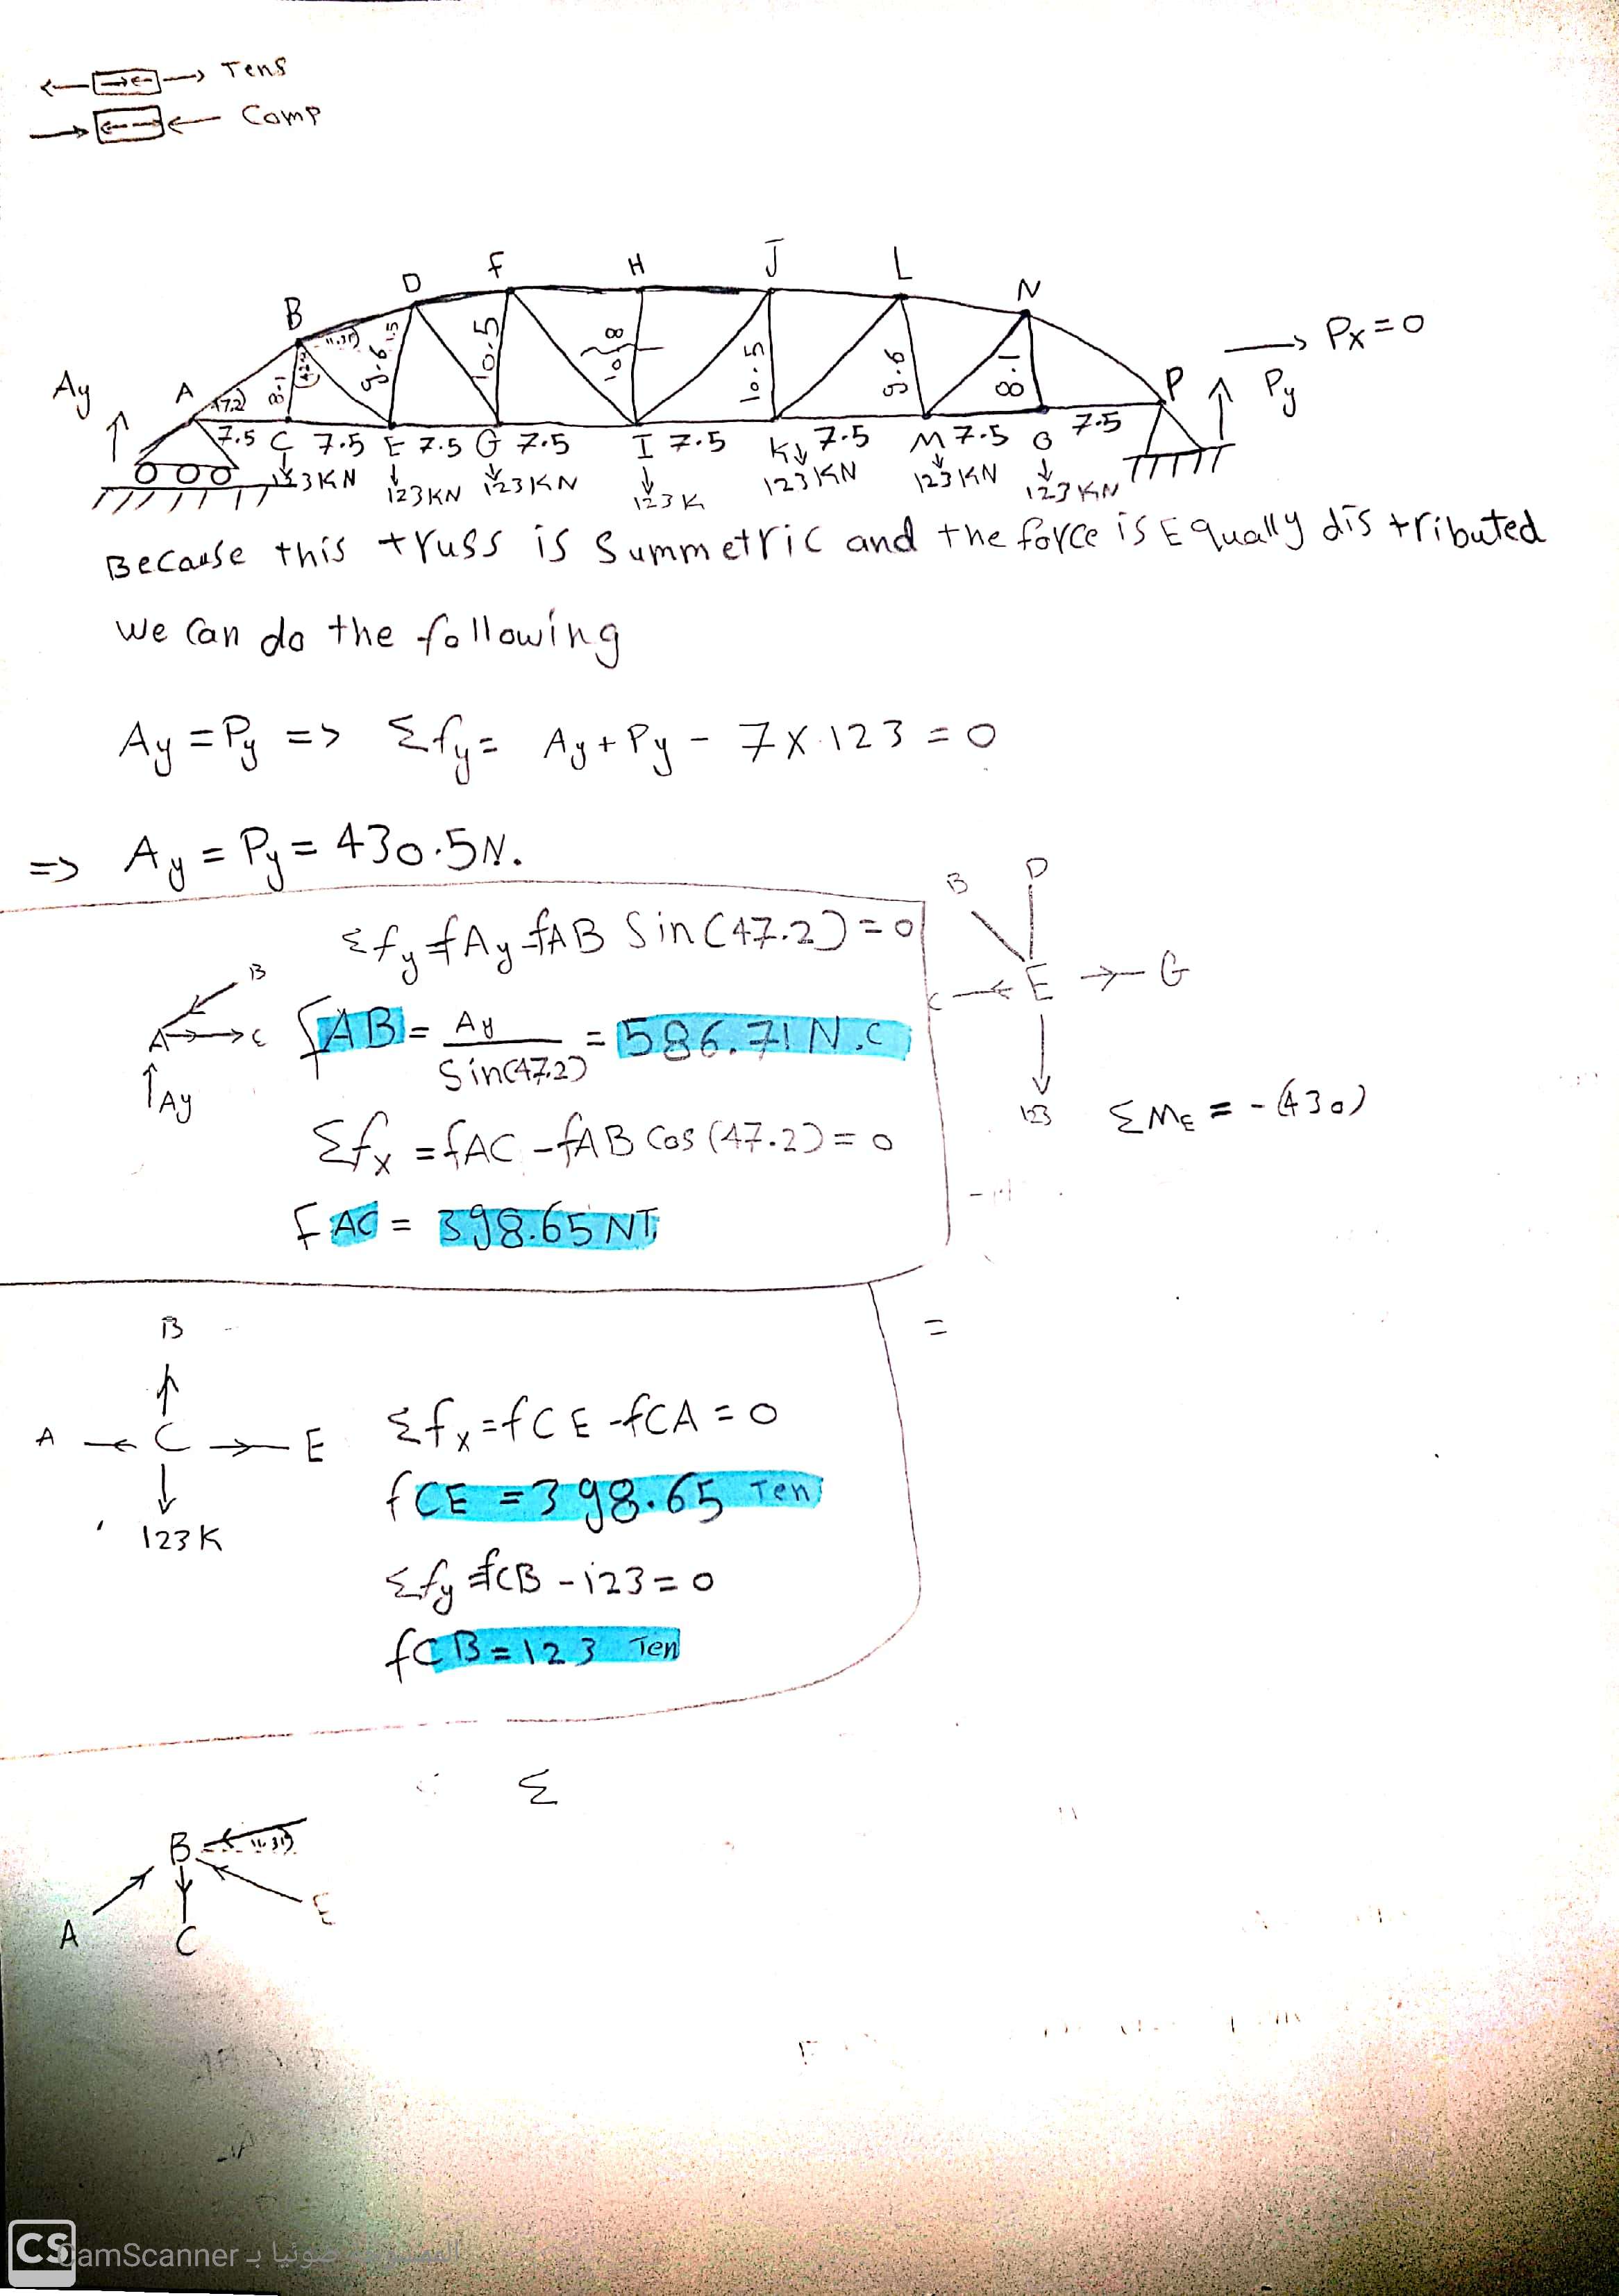 Tens
Comp
A B D F H J L N P
Ay
Px=0
Py
47.2 8.1 42.2 11.31 9.6 1.5 10.5 10.8 10.5 9.6 8.1
7.5 C 7.5 E 7.5 G 7.5 I 7.5 K 7.5 M 7.5 O 7.5
123KN 123KN 123KN 123K 123KN 123KN 123KN
Because this truss is Summetric and the force is Equally distributed
we can do the following
Ay = Py => Σfy = Ay + Py - 7 x 123 = 0
=> Ay = Py = 430.5N.
Σfy = fAy - fAB Sin(47.2) = 0
B
A C
Ay
fAB = Ay / Sin(47.2) = 586.71 N.C
Σfx = fAC - fAB Cos(47.2) = 0
fAC = 398.65 NT
B D
C E G
123
ΣME = -(430)
=
B
A C E
123K
Σfx = fCE - fCA = 0
fCE = 398.65 Ten
Σfy = fCB - 123 = 0
fCB = 123 Ten
Σ
B 11.31
A C E
CS CamScanner